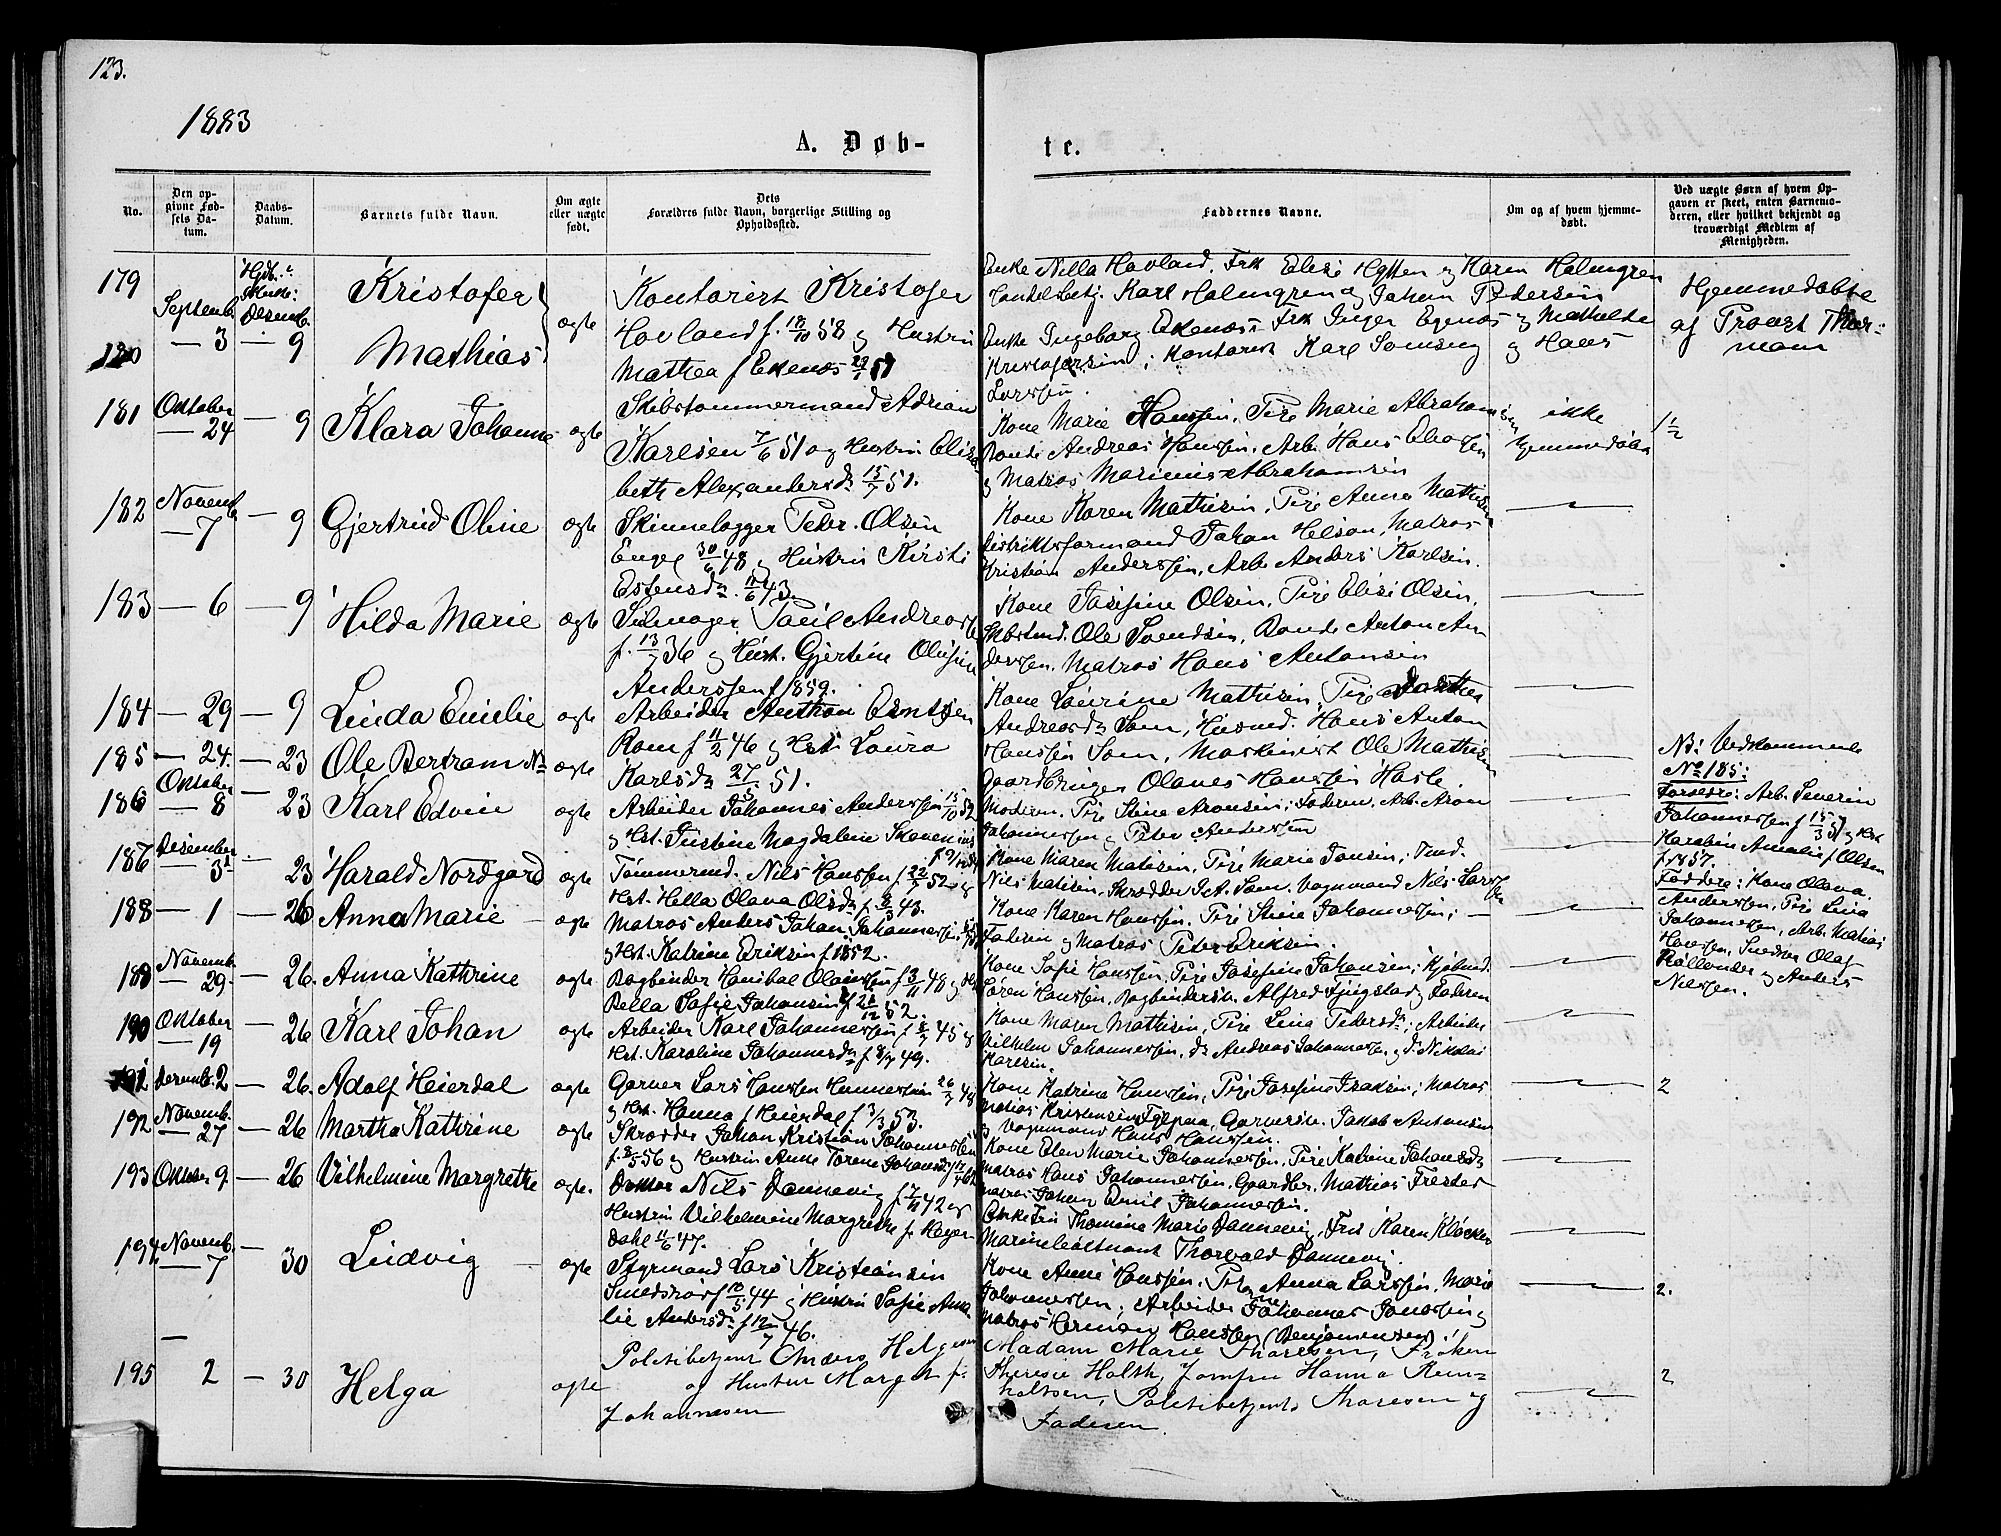 123.
1883
A. Døb-
te.
No.
Den op-
givne Fød-
sels Da-
tum.
Daabs-
Datum.
Barnets fulde Navn.
Om ægte
eller uægte
født.
Dets
Forældres fulde Navn, borgerlige Stilling og
Opholdssted.
Faddernes Navne.
Om og af hvem hjemme-
døbt.
Ved uægte Børn af hvem Op-
gaven er skeet, enten Barnemo-
deren, eller hvilket bekjendt og
troværdigt Medlem af
Menigheden.
179
Septemb.
Desemb.
Kristofer
Kontorist Kristofer
Enke Nilla Hovland, Frk Elise og Karen Holmgren
Handelsbetj. Karl Holmgren og Johan Pedersen
Hjemmedøbte
180
— 3 — 9
Mathias
ægte
Hovland f. 18/10 58 og Hustru
Mathea f Ekenæs
Enke Ingeborg Ekenæs Frk Inger Egenæs og Mathilde
Kristofersen; Kontorist Karl og Hans
Larssen.
af Provst Thor-
181
Oktober
— 24 — 9
Klara Johanne
ægte
Skibstømmermand Adrian
Karlsen 7/6 51 og Hustru Elisa
beth Alexandersd. 15/7 51.
Kone Marie Hanssen, Pige Marie Abraham
Andreas Hanssen, Arb. Hans
og Matros Marinius Abrahamsen
ikke
hjemmedøbt
1 1/2
182
Novemb.
— 7 — 9
Gjertrud Oline
ægte
Skinnelægger Peder Olsen
Engel 30/6 48 og Hustru Kirsti
Estensd. 43
Kone Karen Mathisen, Pige Anna Mathisen
Distriktsformand Johan Nelson, Matros
Kristian Anderssen, Arb. Anders Karlsen.
183 — 6 — 9
Hilda Marie
ægte
Paul Andreas
f. 13/7 36 og Hust. Gjertine Olufine
Anderssen f 1859.
Kone Josefine Olsen, Pige Elise Olsen,
Ole Svendsen, Anton An
derssen, Matros Hans Antonsen
184 — 29 — 9
Linda Emilie
ægte
Arbeider Anthon Berntsen
Rom f 11/2 46 og Hst. Laura
Karlsd. 27/5 51.
Kone Laurine Mathisen, Pige Dorthea
Andreasd. Som, Husmd. Hans Anton
Hanssen Som, Maskinist Ole Mathisen
185 — 24. — 23
Ole Bertram NB
ægte
Gaardbruger Olaves Hanssen Hasle
NB: Vedkommende
No 185:
Forældre: Arb. Severin
Johannessen f 15/3 51 og Hst
Karoline Amalie f Olsen
f. 1857.
Faddere: Kone Olava
Anderssen, Pige Lina
Johannessen, Arb. Matias
Hanssen, Snedker Olaf
og Anders
Nilssen.
186
Oktober
— 8 — 23
Karl Edvin
ægte
Arbeider Johannes Anderssen 15/10 52
og Hst. Justine Magdalene
Moderen, Pige Stine Aronsen; Faderen, Arb. Aron
Johannessen og Peter Anderssen
187
Desember
— 3 — 23
Harald Nordgard
ægte
Tømmermd. Nils Hanssen f 22/7 52 og
Hst. Hella Olava Olsd. f 43.
Kone Maren Matisen, Pige Marie Jonsen; Tmd.
Nils Matisen, Skrædder J. A. Som, Vognmand Nils Larssen
188 — 1 — 26
Anna Marie
ægte
Matros Anders Johan Johannessen
og Hst. Katrine Eriksen f 1852.
Kone Karen Hanssen, Pige Stina Johannessen; —
Faderen og Matros Peter Eriksen.
189
Novemb.
— 29. — 26.
Anna Kathrine
ægte
Bogbinder Hanibal Olaussen f 3/11 48 og Hst
Pella Sofie Johansen f 52.
Kone Sofie Hanssen, Pige Josefine Johansen; Kjøbmd.
Søren Hanssen, Bogbindersv. Alfred og Faderen
190
Oktober
— 19 — 26
Karl Johan
ægte
Arbeider Karl Johannessen f 45 og
Hst. Karoline Johannesd. f 8/7 49.
Kone Maren Mathisen, Pige Lina Pedersd.; Arbeider
Vilhelm Johannessen, do Andreas Johannessen og do Nikolai
191 Desemb. 2 — 26.
Adolf Heierdal
ægte
Garver Lars Hanssen
og Hst. Hanna f Heierdal f 3/3 53.
Kone Katrine Hanssen, Pige Josefine Isaksen; Matros
Matias Kristensen, Garversv. Jakob Antonsen
og Vognmand Hans Hanssen.
2
192
Novemb.
— 27 — 26
Martha Kathrine
ægte
Skrædder Johan Kristian Johannessen
f. 56 og Hustru Anne Torene Johansd.
Kone Elen Marie Johannessen, Pige Katrine Johansd.
Matros Hans Johannessen, Gaardbr. Mathias
Matros Johan Emil Johannessen.
193 Oktober 9. — 26
Vilhelmine Margrethe
ægte.
Doktor Nils Dannevig f 7/11 42 og
Hustru Vilhelmine Margrethe f. Heyer-
dahl 11/6 47.
Enkefru Thomine Marie Dannevig, Fru Karen Kløcker
Marineløitnant Thorvald Dannevig
194
Novemb.
— 7 — 30
Ludvig
ægte
Styrmand Lars Kristiansen
f 10/5 44 og Hustru Sofie Ama
lie Andersd. f 12/7 46.
Kone Anne Hanssen, Pige Anna Larssen, Marie
Johannessen; Arbeider Johannes Jonassen og
Matros Herman Hanssen (Benjaminsen)
2.
195
—
2 — 30
Helga
ægte
Politibetjent Anders Helgesen
og Hustru Margit f.
Johannesen
Madam Marie Thoresen, Frøken
Theresie Holth, Jomfru Hanna Rein-
holtsen, Politibetjent Thoresen og
Faderen.
2